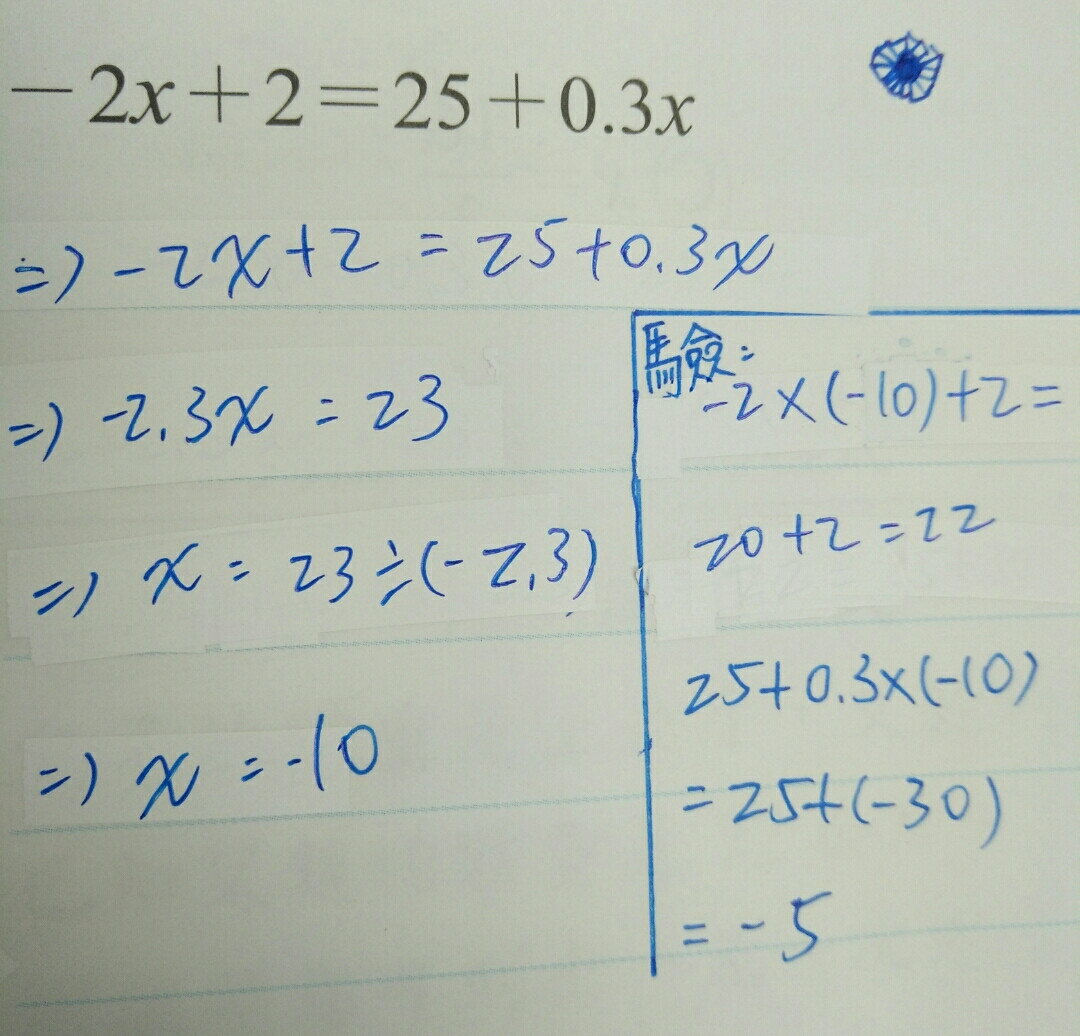 −2x+2=25+0.3x
=> -2x+2 = 25+0.3x
=> -2.3x = 23
=> x = 23÷(-2.3)
=> x = -10
驗:
-2×(-10)+2=
20+2=22
25+0.3×(-10)
=25+(-30)
= -5